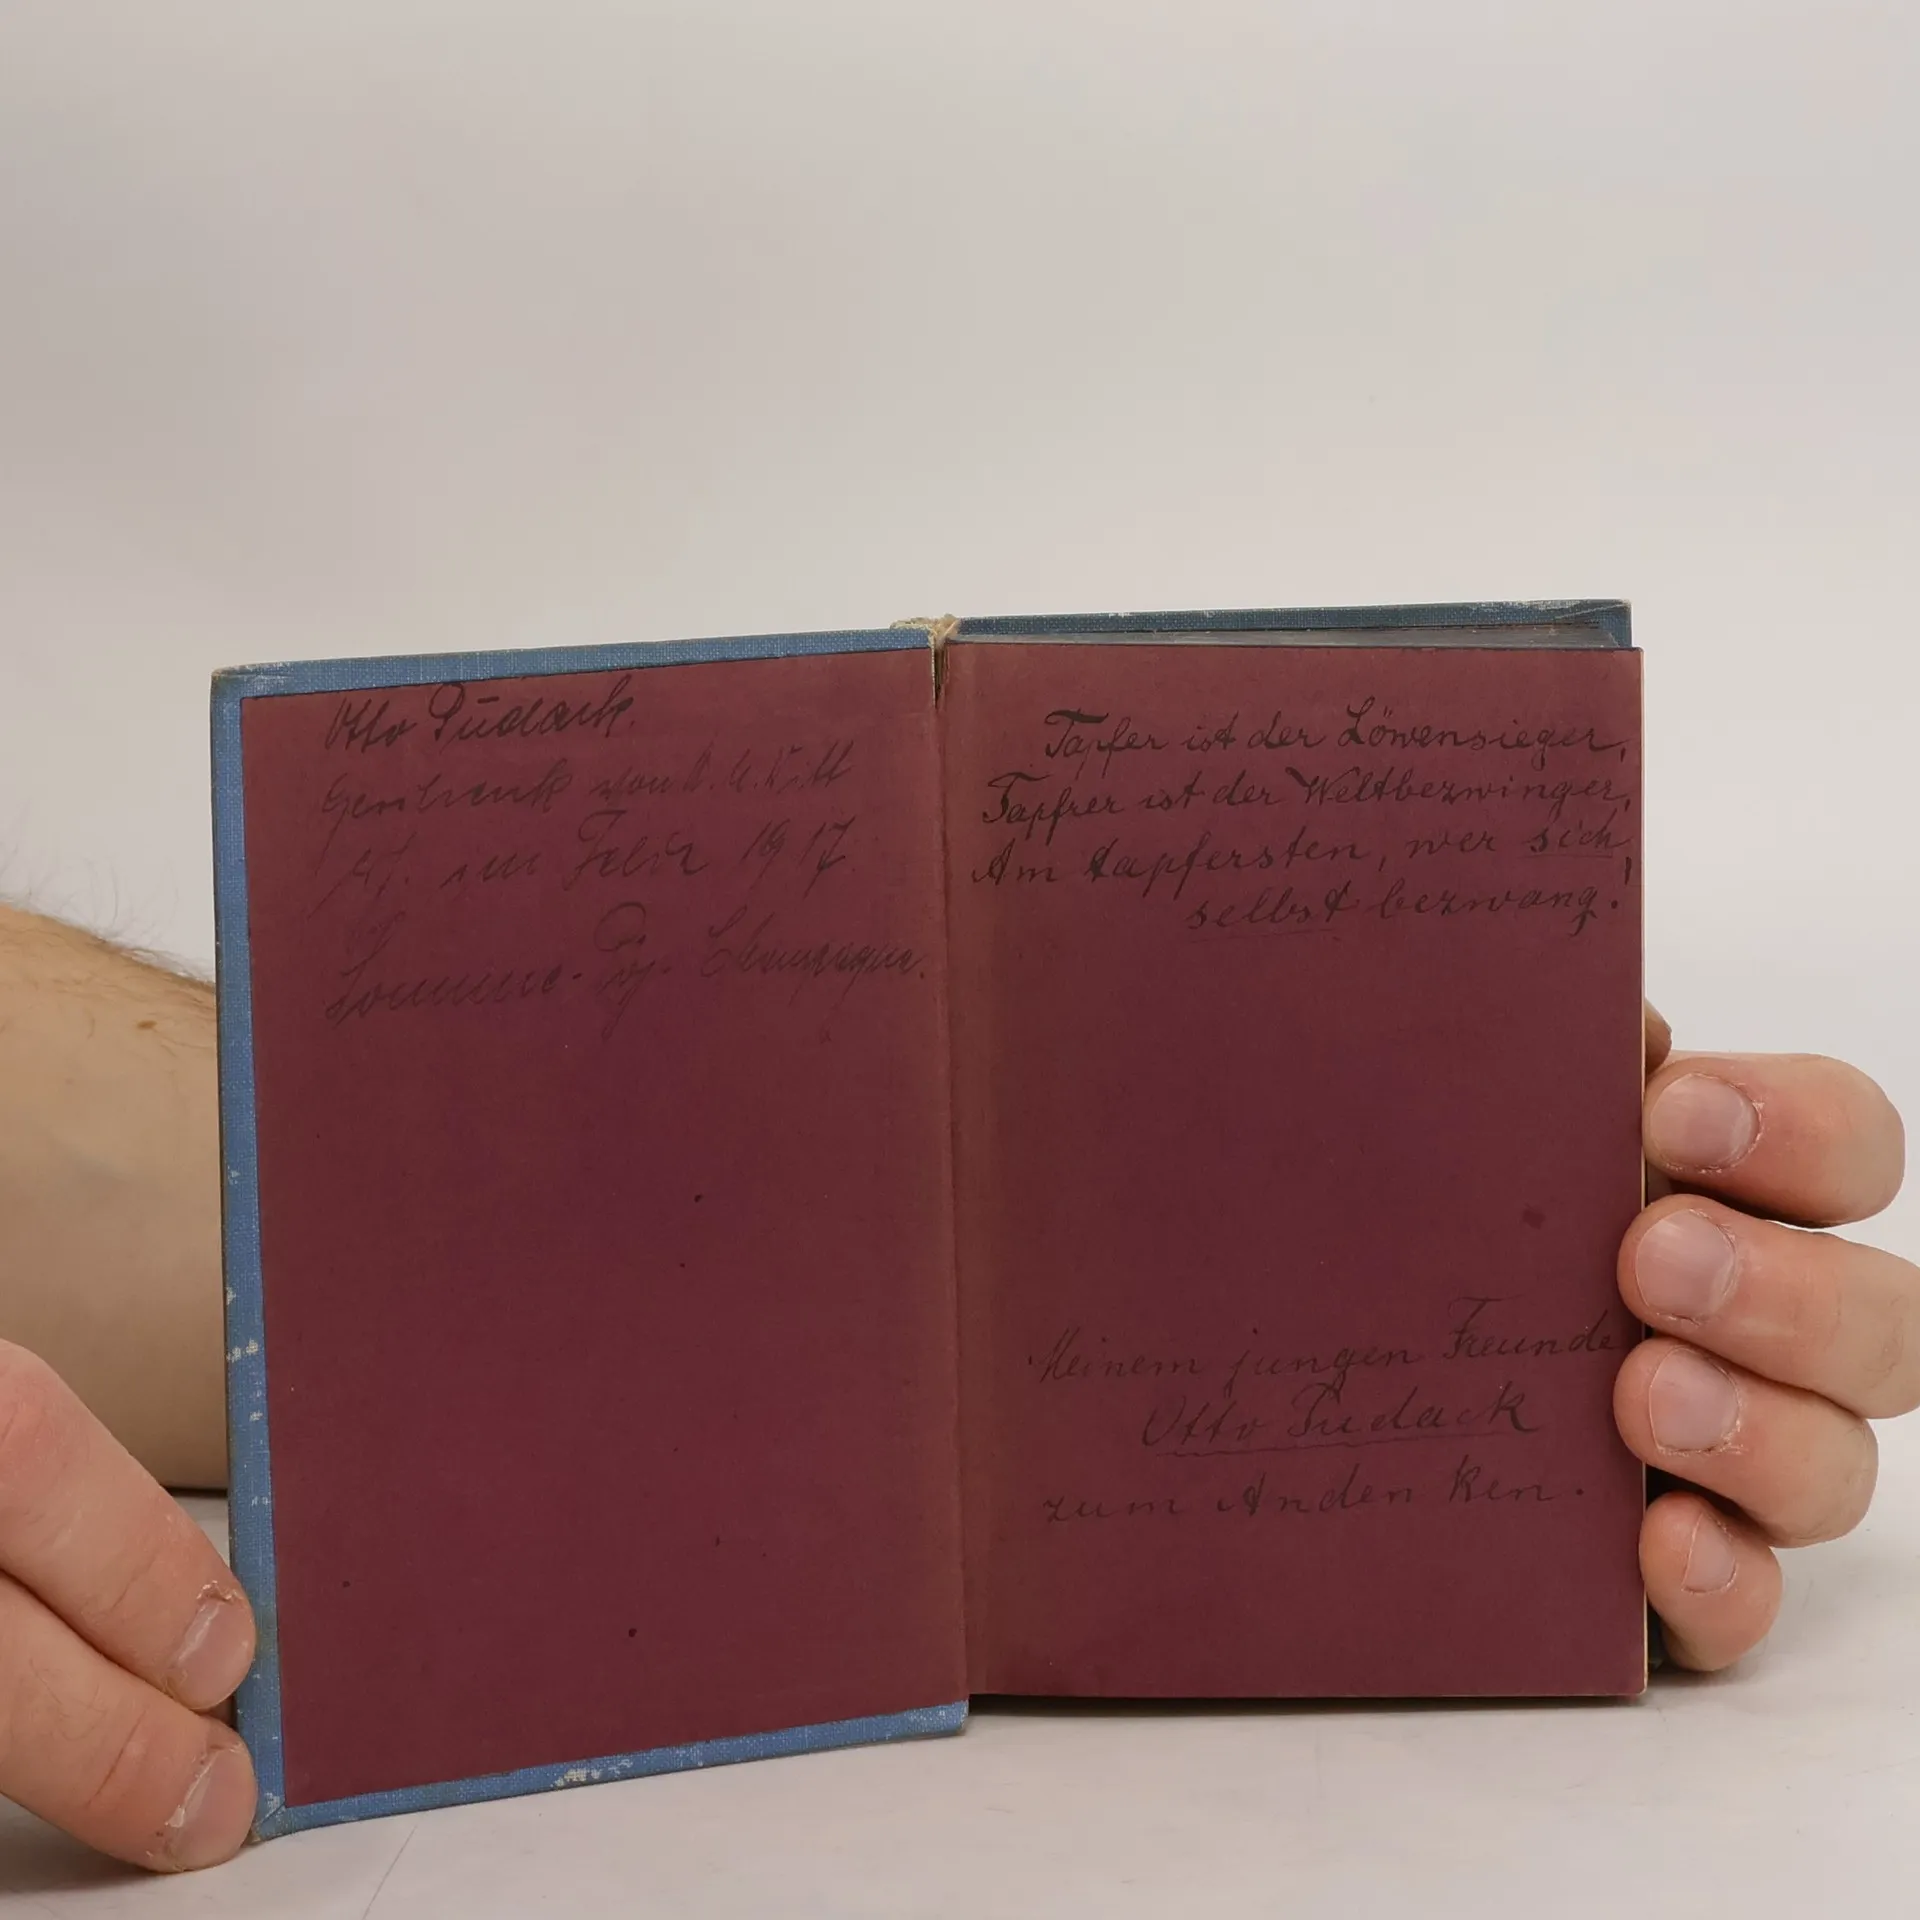 Otto Pudack
Geschenk von
im Febr 1917
Somme-Py. Champagne.
Tapfer ist der Löwensieger,
Tapfrer ist der Weltbezwinger,
Am tapfersten, wer sich
selbst bezwang!
Meinem jungen Freunde
Otto Pudack
zum Andenken.